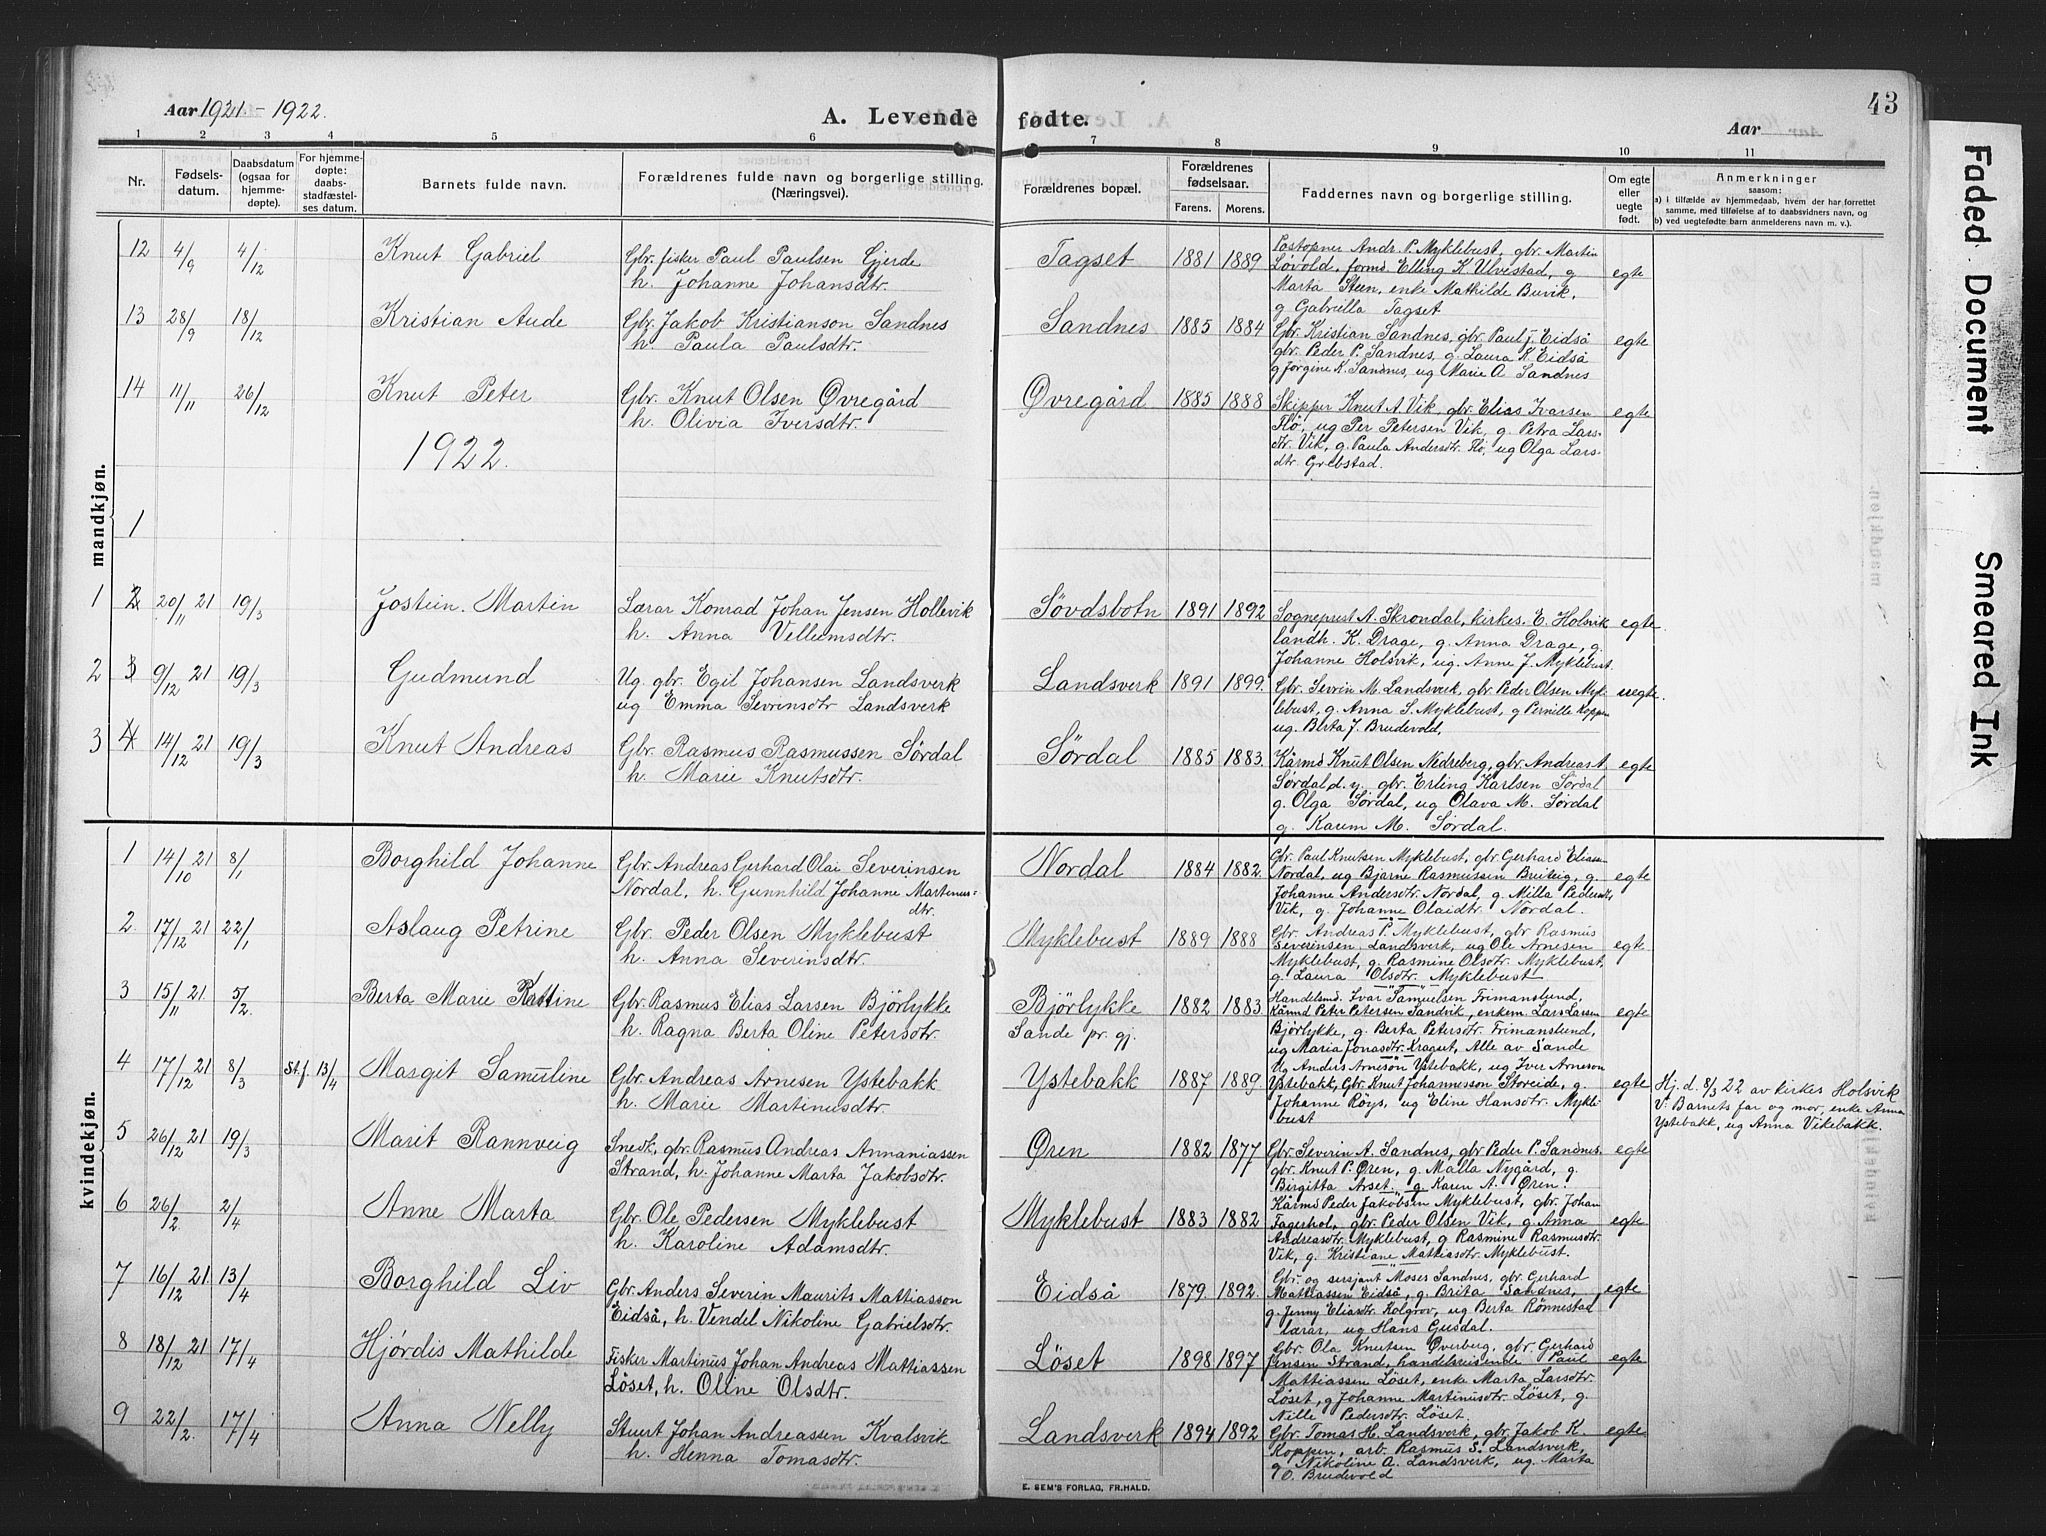 Aar 1921.-1922.
A. Levende fødte.
Aar
43
1 2 3 4 5 6 7 8 9 10 11
Nr.
Fødsels-
datum.
Daabsdatum
(ogsaa for
hjemme-
døpte).
For hjemme-
døpte: daabs-
stadfæstel-
ses datum.
Barnets fulde navn.
Forældrenes fulde navn og borgerlige stilling.
(Næringsvei).
Forældrenes bopæl.
Forældrenes
fødselsaar.
Farens. Morens.
Faddernes navn og borgerlige stilling.
Om egte
eller
uegte
født.
Anmerkninger
saasom:
a) i tilfælde av hjemmedaab, hvem der har forrettet
samme, med tilføielse af to daabsvidners navn, og
b) ved uegtefødte barn anmelderens navn m. v.).
mandkjøn.
12 4/9 4/12 Knut Gabriel
Gbr. fisker Paul Paulsen Gjerde
h. Johanne Johansdtr.
Tagset 1881 1889
Postopner Andr. P. Myklebust, gbr. Martin
Løvold, formd Elling K. Ulvestad, g
Marta Steen, enke Mathilde Buvik,
g Gabriella Tagset
egte
13 28/9 18/12 Kristian Aude
Gbr. Jakob Kristianson Sandnes
h. Paula Paulsdtr.
Sandnes 1885 1884
Gbr. Kristian Sandnes, gbr Paul J. Eidså
gbr. Peder P. Sandnes, g. Laura K. Eidså
g Jorgine K. Sandnes, ug Marie A Sandnes
egte
14 11/11 26/12 Knut Peter
Gbr. Knut Olsen Øvregård
h. Olivia Iversdtr.
Øvregård 1885 1888
Skipper Knut A. Vik, gbr. Elias Ivarsen
Flø, ug Per Petersen Vik, g. Petra Lars-
dtr. Vik, g. Paula Andersdtr. Flø, ug Olga Lars-
dtr. Grebstad.
egte
1922.
1
1 2 20/11 21 19/3 Jostein. Martin
Lærar Konrad Johan Jensen Hollevik
h. Anna Vellumsdtr.
Søvdsbotn 1891 1892
Sogneprest A. Skrondal, kirkes. E. Holsvik
landh. K. Drage, g. Anna Drage, g.
Johanne Holsvik, ug. Anne J. Myklebust.
egte.
2 3 9/12 21 19/3 Gudmund
Ug. gbr. Egil Johansen Landsverk
ug Emma Sevrinsdtr Landsverk
Landsverk 1891 1899.
Gbr. Sevrin M. Landsverk, gbr. Peder Olsen Myk-
lebust, g. Anna S. Myklebust, g Pernille Koppen
ug. Berta J. Brudevold,
uegte.
3 4 14/12 21 19/3 Knut Andreas
Gbr. Rasmus Rasmussen Sørdal
h. Marie Knutsdtr.
Sørdal 1885 1883.
Kårmd Knut Olsen Nedreberg, gbr. Andreas A
Sørdal, d. y. gbr. Erling Karlsen Sørdal
g. Olga Sørdal, ug Olava M. Sørdal
g. Karen M. Sørdal.
egte
kvindekjøn.
1 14/10 21 8/1 Borghild Johanne
Gbr. Andreas Gerhard Olai Severinsen
Nordal, h. Gunnhild Johanne Martinus-
dtr.
Nordal 1884 1882
Gbr. Paul Knutsen Myklebust, gbr. Gerhard Eliassen
Nordal, ug Bjarne Rasmussen Breiteig, g.
Johanne Andersdtr. Nordal, g. Milla Pedersdtr.
Vik, g. Johanne Olaidtr. Nordal.
egte
2. 17/12 21 22/1 Aslaug Petrine
Gbr. Peder Olsen Myklebust
h. Anna Severinsdtr.
Myklebust 1889 1888
Gbr. Andreas P. Myklebust, gbr Rasmus
Severinsen Landsverk, ug Ole Arnesen
Myklebust, g. Rasmine Olsdtr. Myklebust,
g. Laura Olsdtr. Myklebust
egte
3 15/11 21 5/2. Berta Marie Kattine
Gbr. Rasmus Elias Larsen Bjørlykke
h. Ragna Berta Oline Petersdtr.
Bjørlykke
Sande pr. gj. 1882 1883
Handelsmd. Ivar Samuelsen Frimanslund,
Kårmd Peter Petersen Sandvik, enkem. Lars Larsen
Bjørlykke, g. Berta Petersdtr. Frimanslund,
ug Maria Jonasdtr. Kragset, Alle av Sande
egte
4 17/12 21 8/3 St.f. 13/4 Margit Samuline
Gbr. Andreas Arnesen Ystebakk
h. Marie Martinusdtr.
Ystebakk 1887 1889.
Ug Anders Arneson Ystebakk, ug Iver Arneson
Ystebakk, Gbr. Knut Johannesson Storeide, g.
Johanne Röys, ug Eline Hansdtr. Mykle-
bust
egte
Hj. d. 8/3 22 av kirkes Holsvik
V: Barnets far og mor, enke Anna
Ystebakk, ug Anna Vikebakk.
5 26/12 21 19/3 Marit Rannveig
Snedk, gbr. Rasmus Andreas Annaniassen
Strand, h. Johanne Marta Jakobsdtr.
Øren 1882 1877
Gbr. Severin A. Sandnes, gbr Peder P. Sandnes.
gbr. Knut P. Øren, g. Malla Nygård, g.
Birgitta Arset g Karen A. Øren.
egte
6 26/2 2/4 Anne Marta
Gbr. Ole Pedersen Myklebust
h. Karoline Adamsdtr.
Myklebust 1883 1882
Kårmd Peder Jakobsen Myklebust, gbr. Johan
Fagerhol, gbr. Peder Olsen Vik, g. Anna
Andreasdtr. Myklebust, g Rasmine Rasmusdtr.
Vik, g. Kristiane Mattiasdtr. Myklebust.
egte
7 16/12 21. 13/4 Borghild Liv
Gbr. Anders Severin Maurits Mattiasson
Eidså, h. Vendel Nikoline Gabrielsdtr.
Eidså 1879. 1892.
Gbr. og sersjant Moses Sandnes, gbr. Gerhard
Mattiassen Eidså, g Brita Sandnes,
g. Jenny Eliasdtr Kolgrov, ug Berta Rønnestad
lærar, ug Hans Gusdal.
egte
8 18/12 21 17/4 Hjørdis Mathilde
Fisker Martinus Johan Andreas Mattiassen
Løset, h. Oline Olsdtr.
Løset 1898 1897
Gbr. Ola Knutsen Øverberg, gbr. Gerhard
Jensen Strand, handelsreisende Paul
Mattiassen Løset, enke Marta Larsdtr.
Løset, g Johanne Martinusdtr. Løset, g.
Nille Pedersdtr. Løset.
egte
9 22/2. 17/4 Anna Nelly
Stuert Johan Andreassen Kvalsvik
h. Henna Tomasdtr.
Landsverk 1894 1892
Gbr. Tomas H. Landsverk, gbr. Jakob K.
Koppen, arb. Rasmus S. Landsverk,
g Nikoline A. Landsverk, ug. Marta
O. Brudevold
egte
E. SEM'S FORLAG, FR.HALD.
Faded Document
Smeared Ink